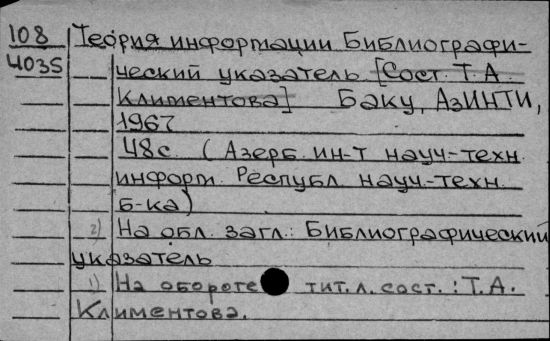 108 Теория информации Библиографи-
4035 ческий указатель. [Сост. Т.А.
Климентова] Баку, АзИНТИ,
1967
48с. (Азерб. ин-т науч-техн.
информ. Республ. науч-техн.
б-ка)
2) На обл. загл.: Библиографический
указатель
1) На обороте тит. л. сост.: Т.А.
Климентова.